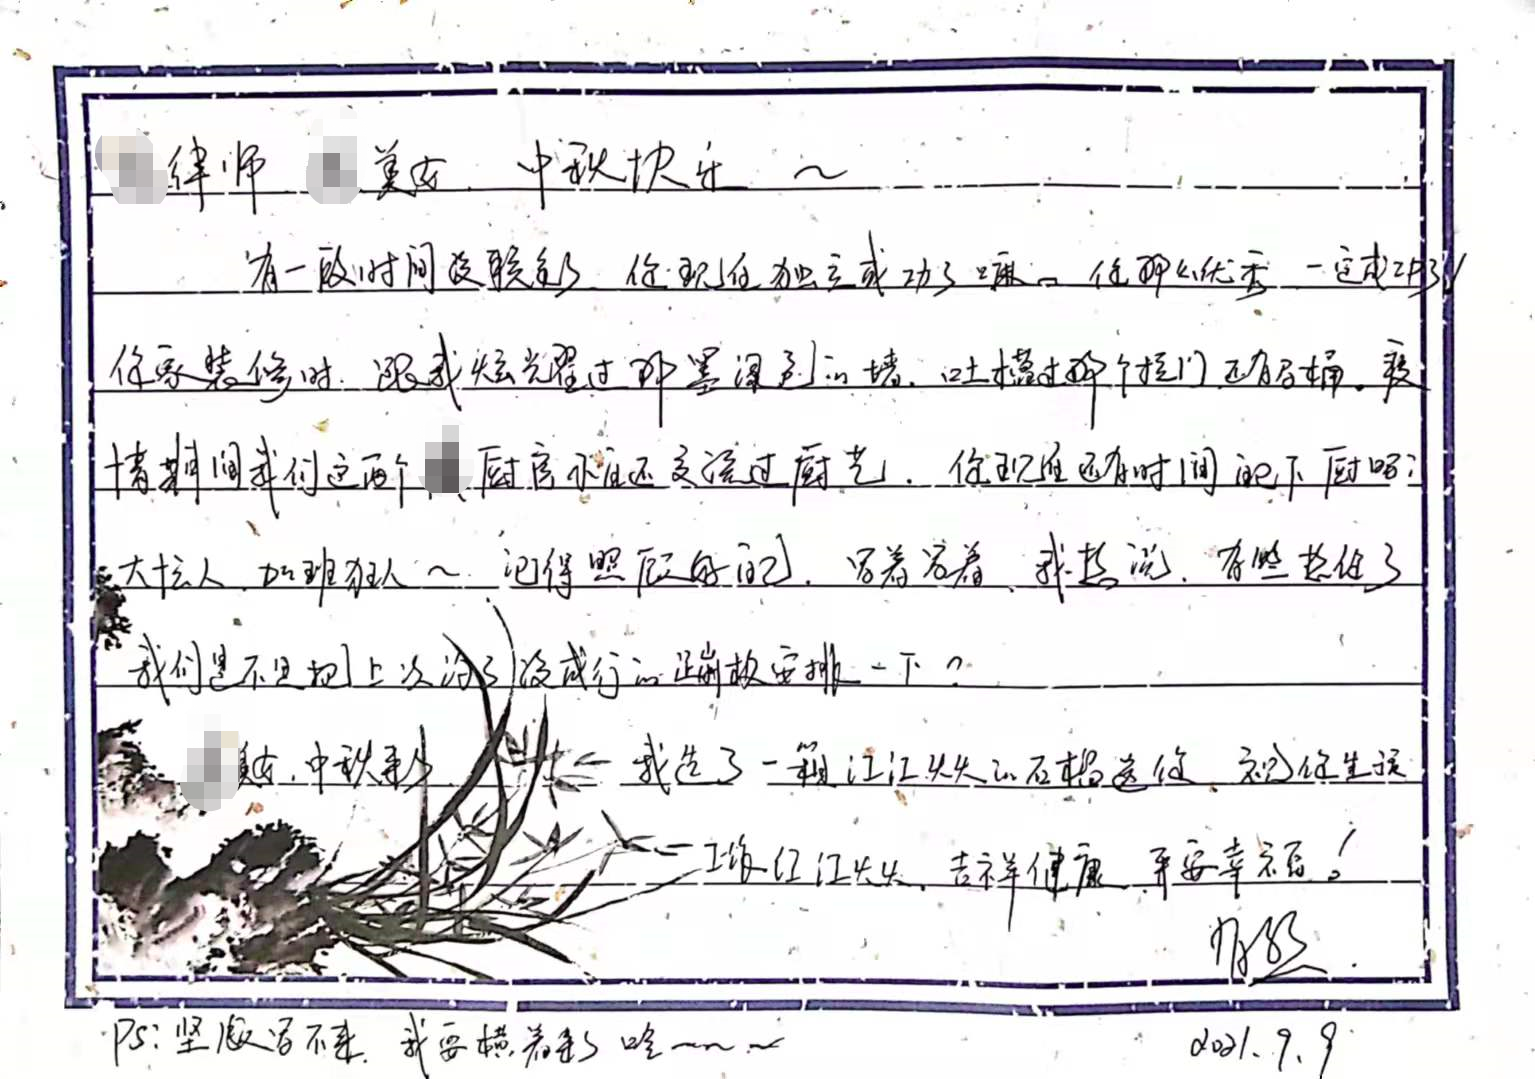 律师 美女 中秋快乐 ~
有一段时间没联系了 你现在独立成功了嘛。你那么优秀 一定成功了!
你家装修时 跟我炫耀过那墨绿色的墙,吐槽过那个拉门 还有马桶。疫
情期间我们这两个 厨房小白还交流过厨艺, 你现在还有时间自己下厨吗?
大忙人,加班狂人~ 记得照顾好自己,写着写着,我想说,有些想你了
我们是不是把上次约了没成行的蹦极安排一下?
美女,中秋来了 我选了一箱红红火火的石榴送你 祝你生活
工作红红火火,吉祥健康,平安幸福!
PS: 竖版写不来,我要横着来了 哈~~~
2021.9.9